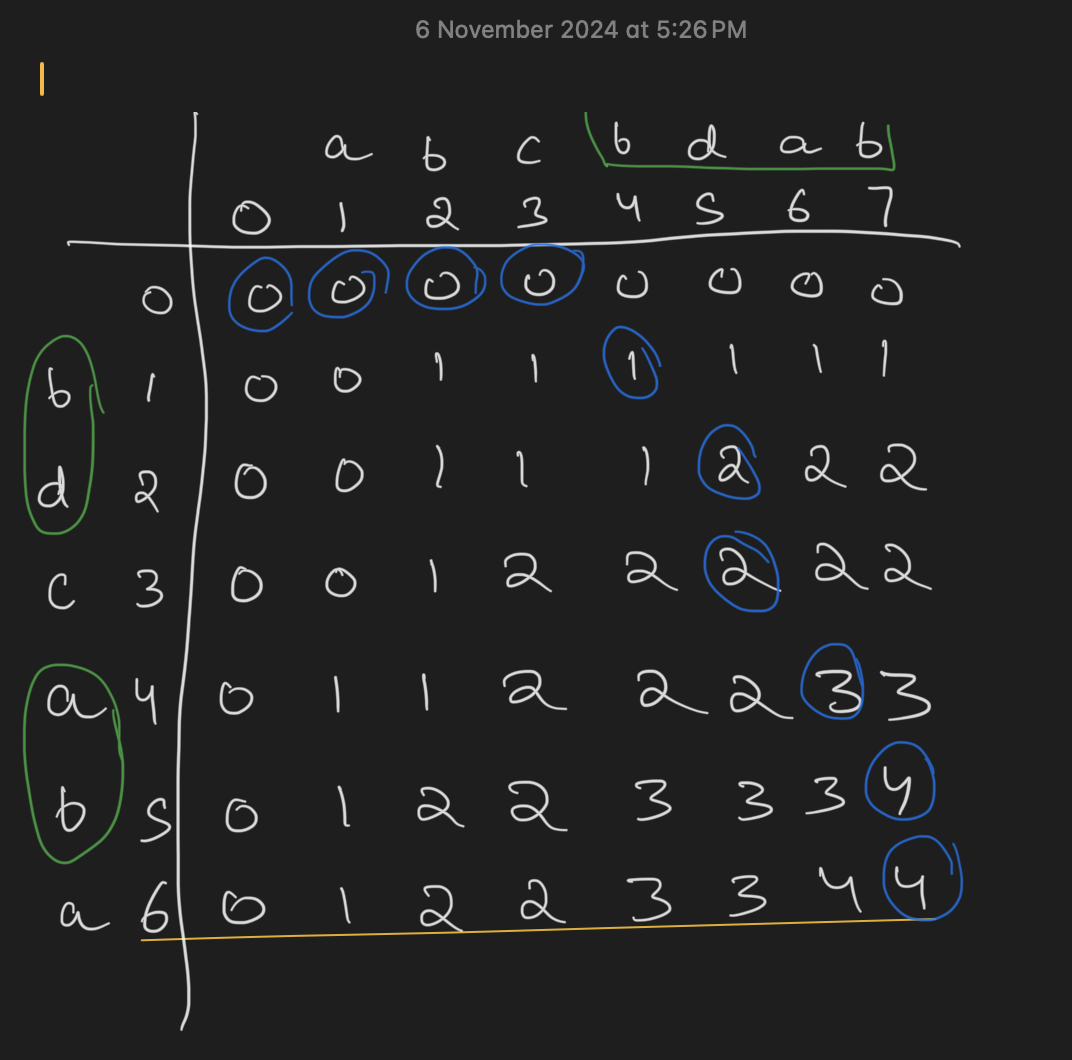 6 November 2024 at 5:26 PM
a b c b d a b
0 1 2 3 4 5 6 7
0 0 0 0 0 0 0 0 0
b 1 0 0 1 1 1 1 1 1
d 2 0 0 1 1 1 2 2 2
c 3 0 0 1 2 2 2 2 2
a 4 0 1 1 2 2 2 3 3
b 5 0 1 2 2 3 3 3 4
a 6 0 1 2 2 3 3 4 4